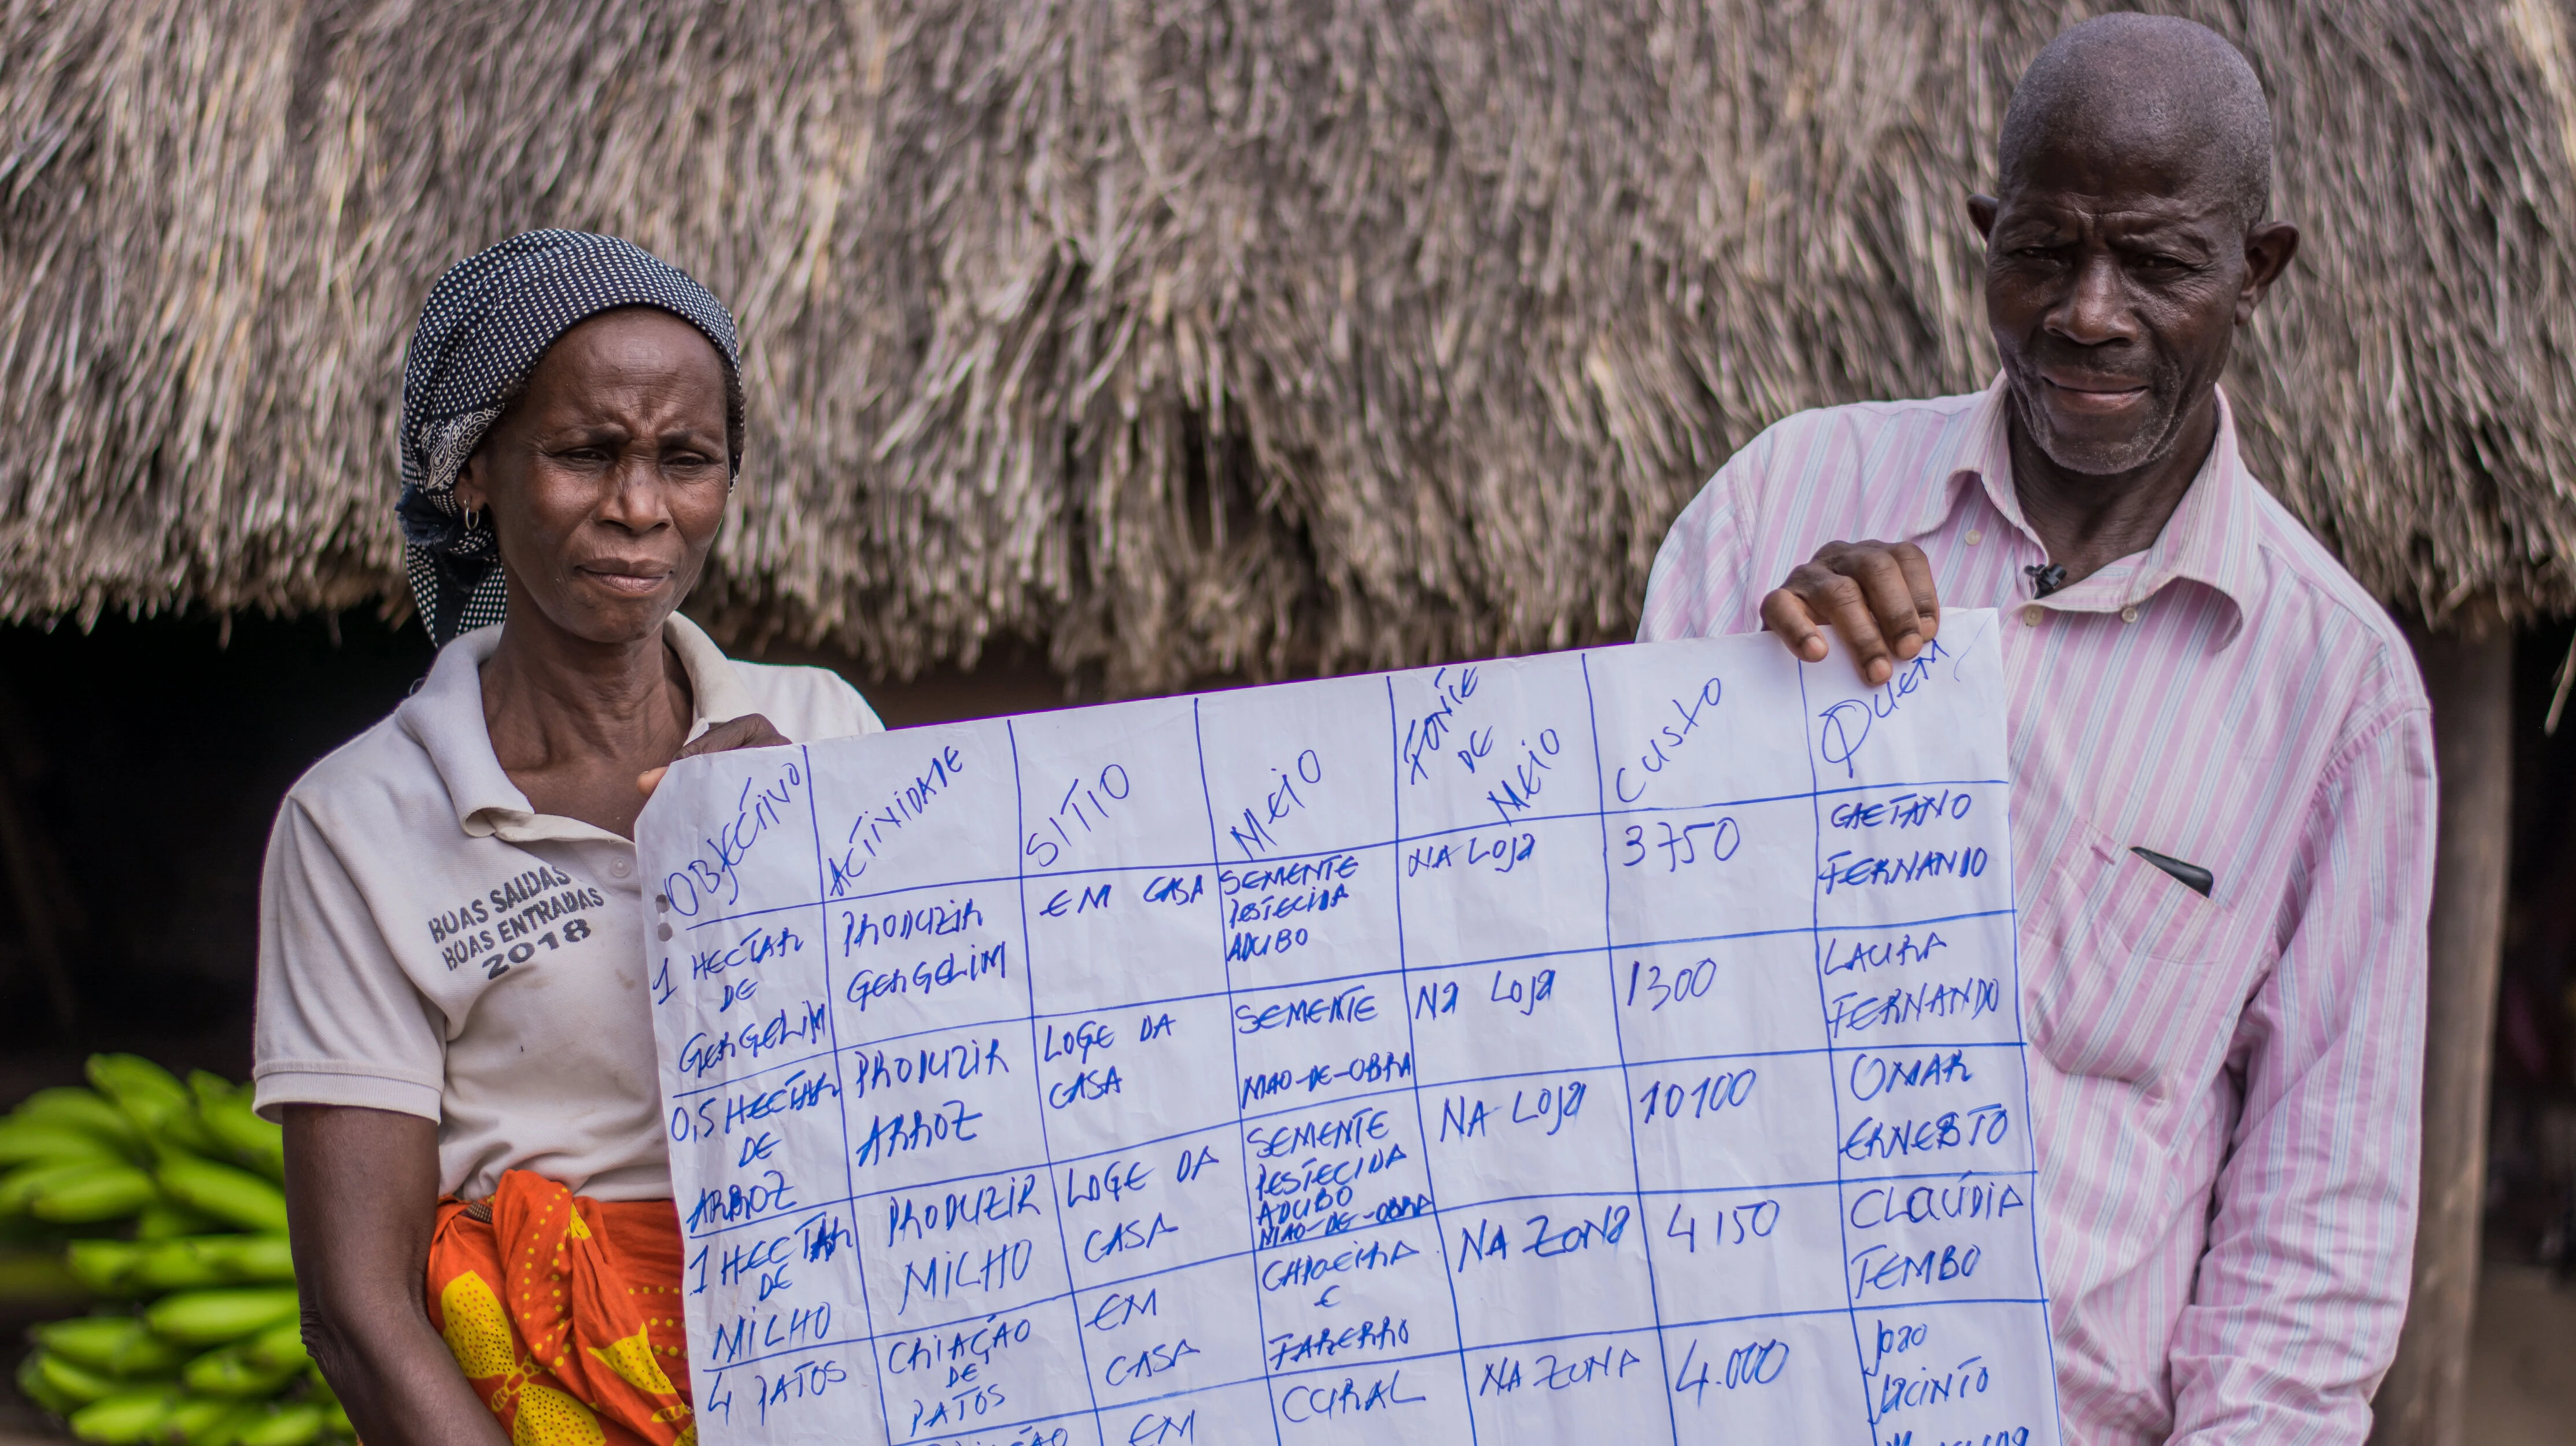 BOAS SAIDAS
BOAS ENTRADAS
2018
OBJECTIVO
ACTIVIDADE
SITIO
MEIO
FONTE
DE
MEIO
CUSTO
QUEM
1 HECTAR
DE
GERGELIM
PRODUZIR
GERGELIM
EM CASA
SEMENTE
PESTECIDA
ADUBO
NA LOJA
3750
GAETANO
FERNANDO
0,5 HECTAR
DE
ARROZ
PRODUZIR
ARROZ
LOGE DA
CASA
SEMENTE
MAO-DE-OBRA
NA LOJA
1300
LAURA
FERNANDO
1 HECTAR
DE
MILHO
PRODUZIR
MILHO
LOGE DA
CASA
SEMENTE
PESTECIDA
ADUBO
MAO-DE-OBRA
NA LOJA
10100
OMAR
ERNESTO
4 PATOS
CRIAÇÃO
DE
PATOS
EM
CASA
CAPOEIRA
E
FARERRO
NA ZONA
4150
CLAÚDIA
TEMBO
EM
CURAL
NA ZONA
4.000
JOAO
JACINTO